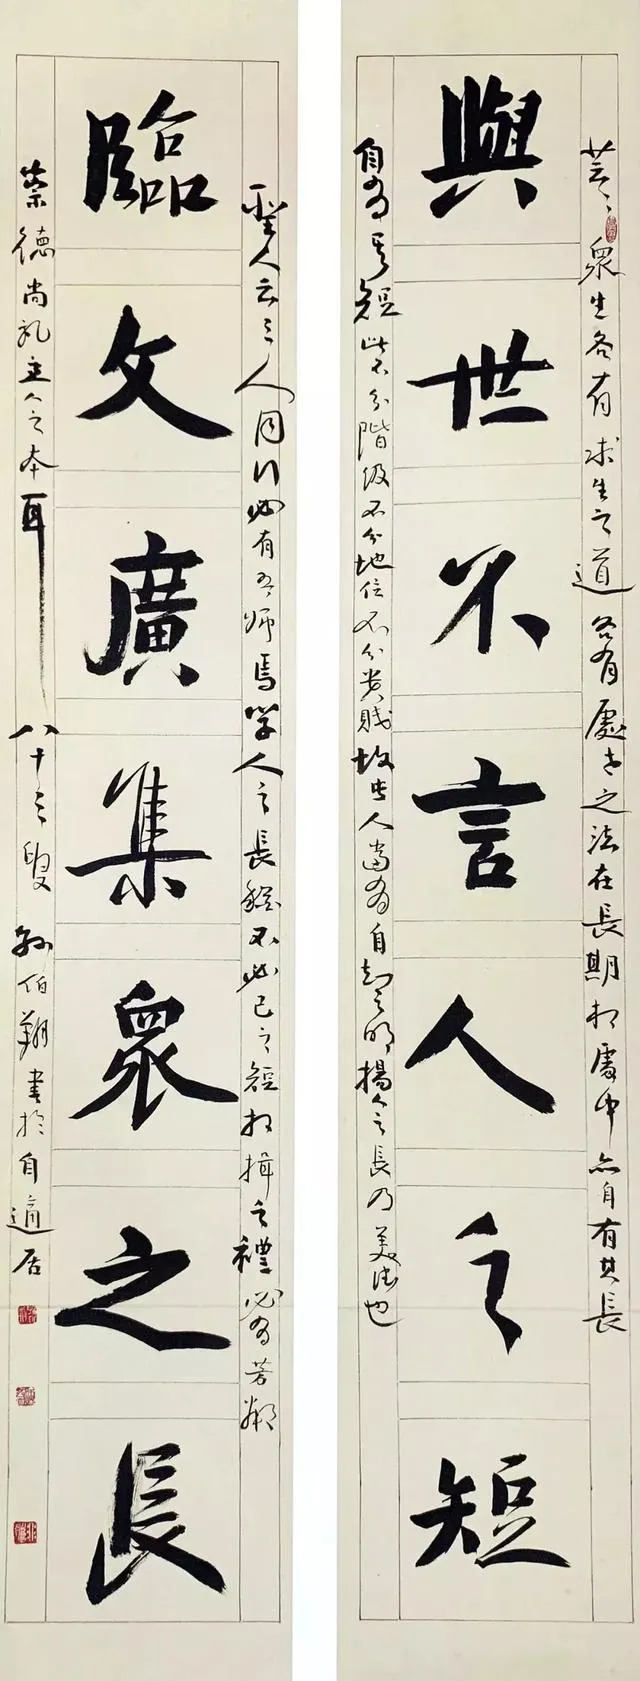 與世不言人之短
臨文廣集眾之長
芸〻眾生各有求生之道各有處世之法在長期相處中亦自有其長
自其短此不分階級不分地位不分貴賤故人當自知之明揚人之長乃美德也
聖人云三人同行必有吾師焉學人之長不必己之短相揖之禮必芳鄰
崇德尚礼立人之本耳
八十三叟孙伯翔書於自適居